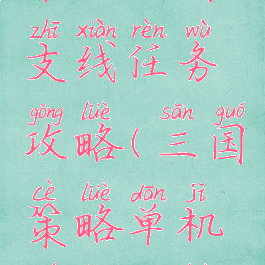 zhī xiàn rèn wù
支线任务
gōng lüè sān guó
攻略(三国
cè lüè dān jī
策略单机